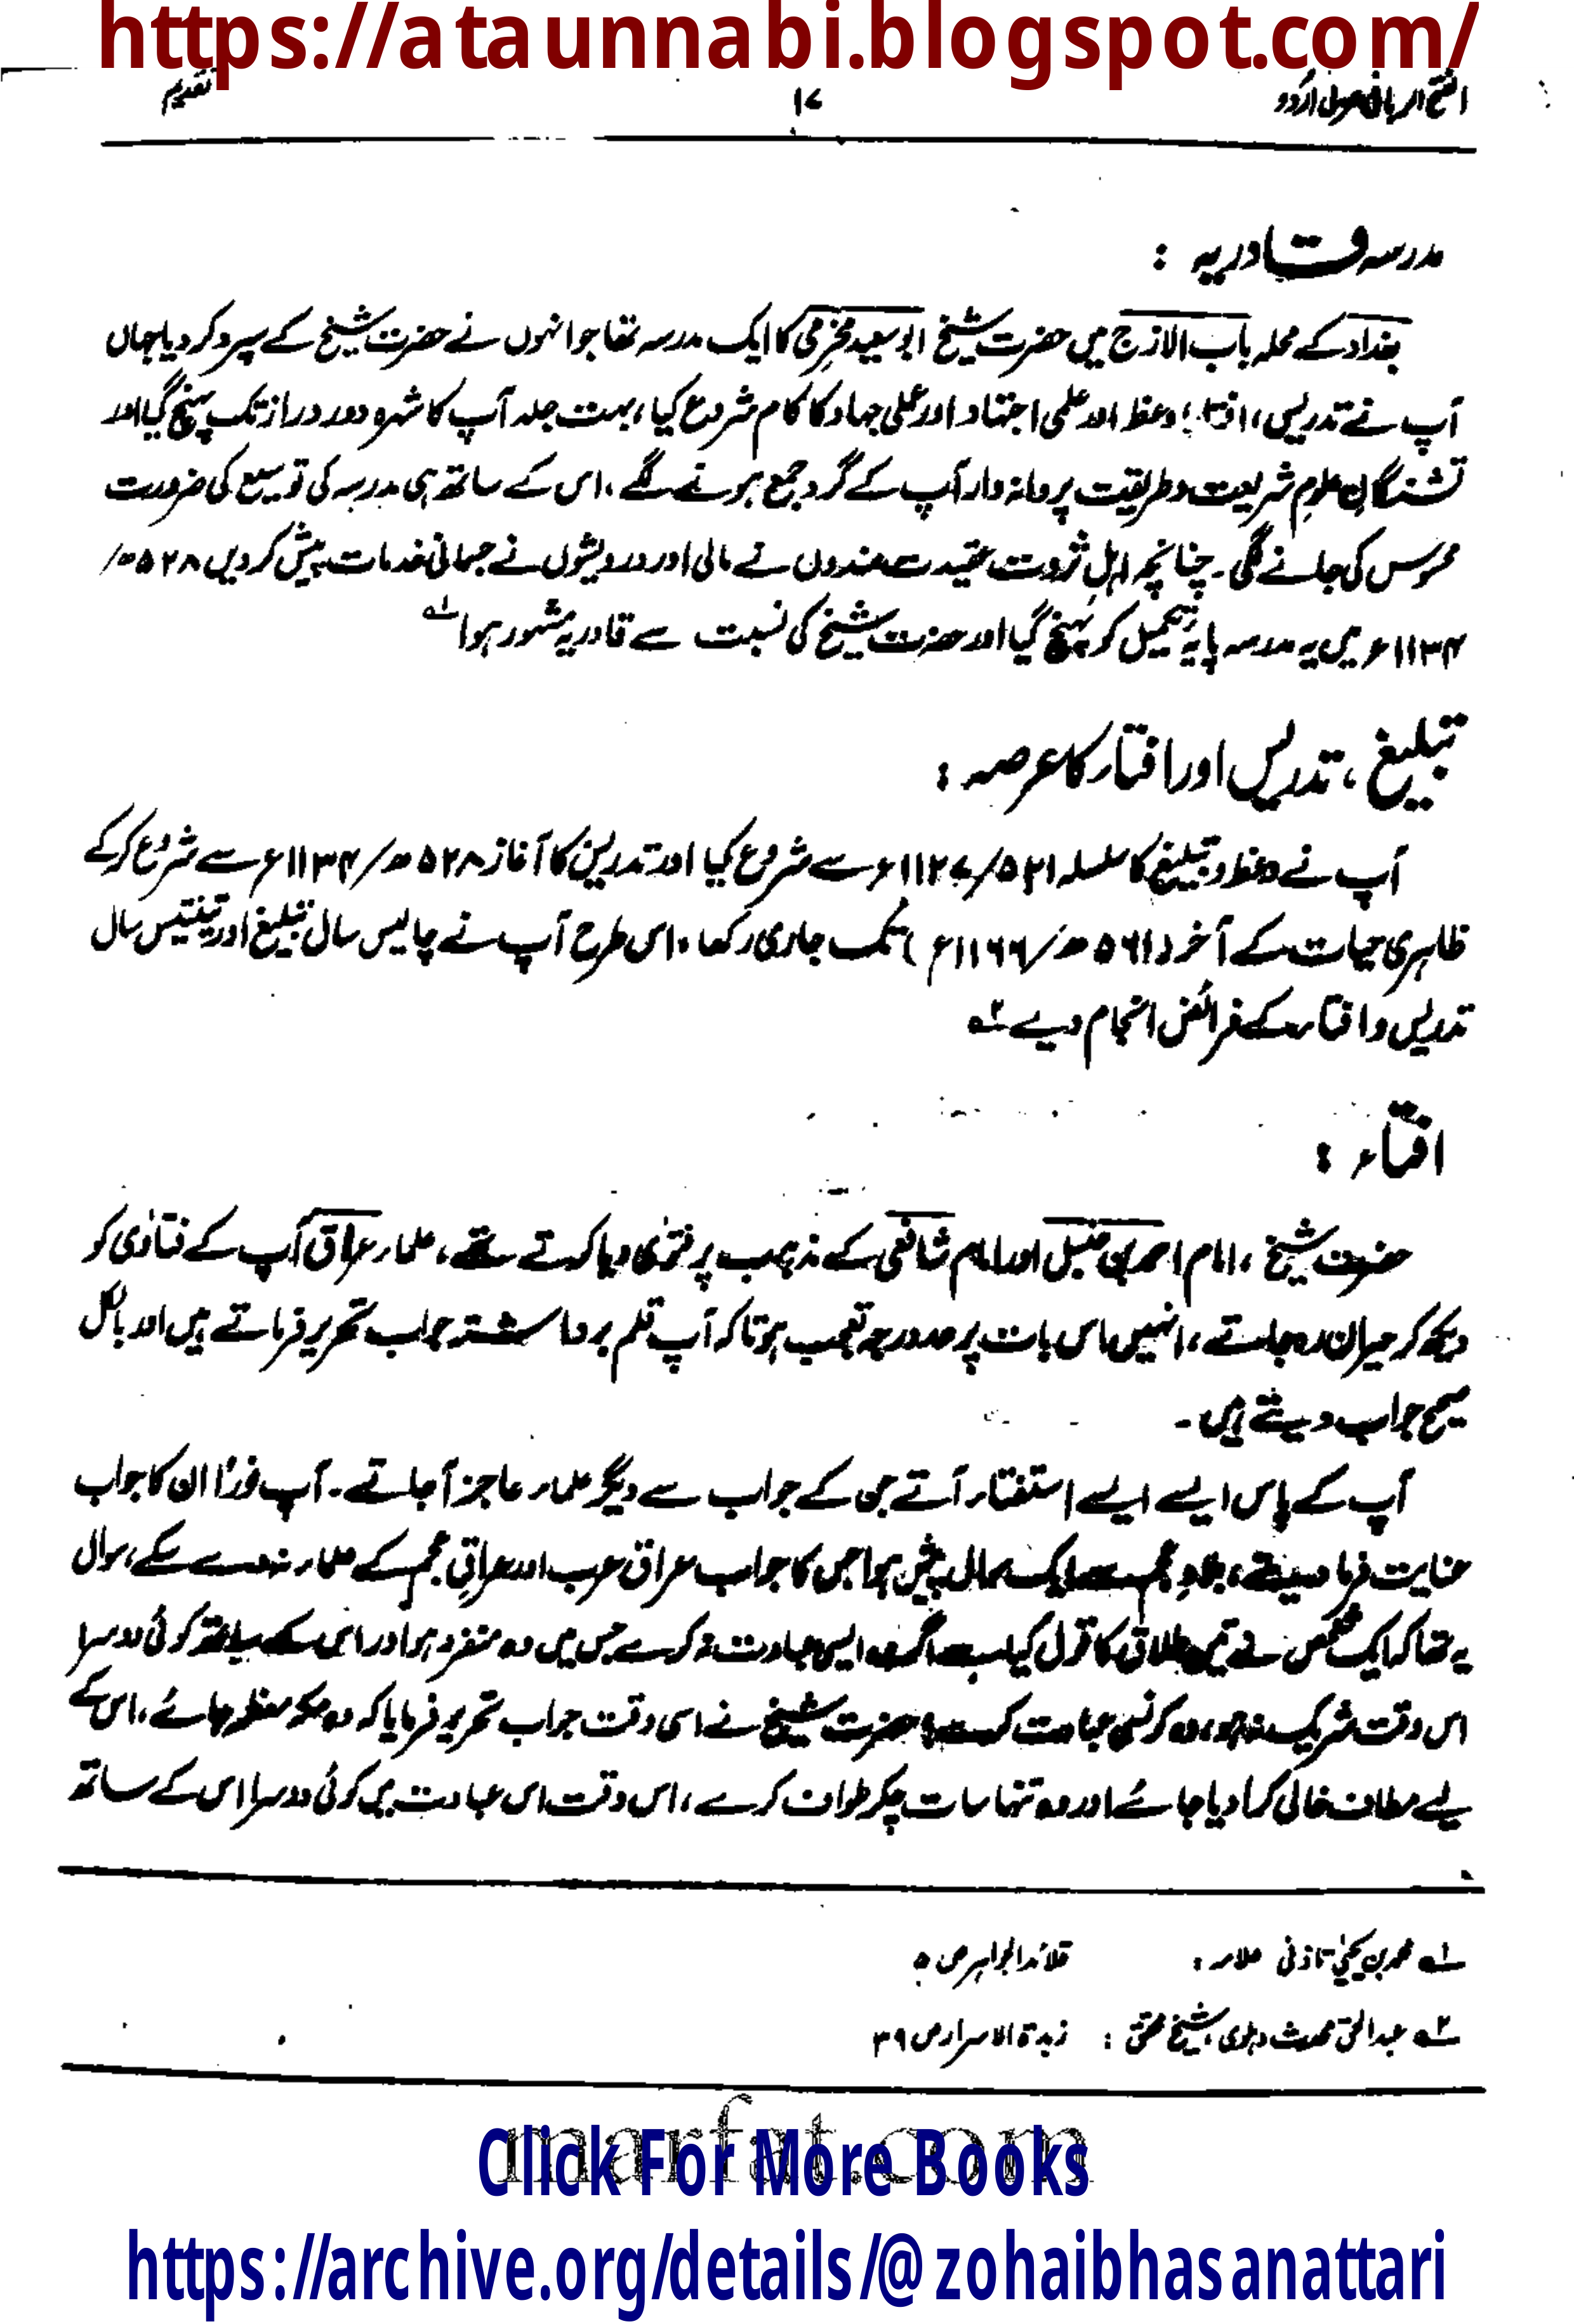 https://ataunnabi.blogspot.com/
الفتح الربانی عربی اردو ۱۷ تقدیم
مدرسہ قادریہ :
بغداد کے محلہ باب الازج میں حضرت شیخ ابو سعید مخرمی کا ایک مدرسہ تھا جو انہوں نے حضرت شیخ کے سپرد کر دیا جہاں
آپ نے تدریس، افتاء، وعظ اور علمی اجتہاد اور عملی جہاد کا کام شروع کیا، بہت جلد آپ کا شہرہ دور دراز تک پہنچ گیا اور
تشنگانِ علومِ شریعت و طریقت پروانہ وار آپ کے گرد جمع ہونے لگے، اس کے ساتھ ہی مدرسہ کی توسیع کی ضرورت
محسوس کی جانے لگی۔ چنانچہ اہلِ ثروت عقیدت مندوں نے مالی اور درویشوں نے جسمانی خدمات پیش کر دیں ۵۲۸ھ/
۱۱۳۴ء میں یہ مدرسہ پایۂ تکمیل کو پہنچ گیا اور حضرت شیخ کی نسبت سے قادریہ مشہور ہوا ۱؎
تبلیغ، تدریس اور افتاء کا عرصہ :
آپ نے وعظ و تبلیغ کا سلسلہ ۵۲۱/۱۱۲۷ء سے شروع کیا اور تدریس کا آغاز ۵۲۸ھ/۱۱۳۴ء سے شروع کر کے
ظاہری حیات کے آخر (۵۶۱ھ/۱۱۶۶ء) تک جاری رکھا، اس طرح آپ نے چالیس سال تبلیغ اور تینتیس سال
تدریس و افتاء کے فرائض انجام دیے ۲؎
افتاء :
حضرت شیخ، امام احمد بن حنبل اور امام شافعی کے مذہب پر فتویٰ دیا کرتے تھے، علماء عراق آپ کے فتاویٰ کو
دیکھ کر حیران رہ جاتے، انہیں اس بات پر حد درجہ تعجب ہوتا کہ آپ قلم برداشتہ جواب تحریر فرماتے ہیں اور بالکل
صحیح جواب دیتے ہیں۔
آپ کے پاس ایسے ایسے استفتاء آتے جن کے جواب سے دیگر علماء عاجز آ جاتے۔ آپ فوراً ان کا جواب
عنایت فرما دیتے، بلادِ عجم سے ایک سوال پیش ہوا جس کا جواب عراق عرب اور عراقِ عجم کے علماء نہ دے سکے، سوال
یہ تھا کہ ایک شخص نے تین طلاق کا قول کیا ہے اگر وہ ایسی عبادت نہ کرے جس میں وہ منفرد ہو اور اس کے ساتھ کوئی دوسرا
اس وقت شریک نہ ہو، وہ کونسی عبادت کرے؟ حضرت شیخ نے اسی وقت جواب تحریر فرمایا کہ وہ مکہ معظمہ جائے، اس کے
لیے مطاف خالی کرا دیا جائے اور وہ تنہا سات چکر طواف کرے، اس وقت اس عبادت میں کوئی دوسرا اس کے ساتھ
۱؎ محمد بن یحییٰ تاذفی علامہ : قلائد الجواہر ص ۵
۲؎ عبدالحق محدث دہلوی، شیخ محقق : زبدۃ الاسرار ص ۳۹
marfat.com
Click For More Books
https://archive.org/details/@zohaibhasanattari